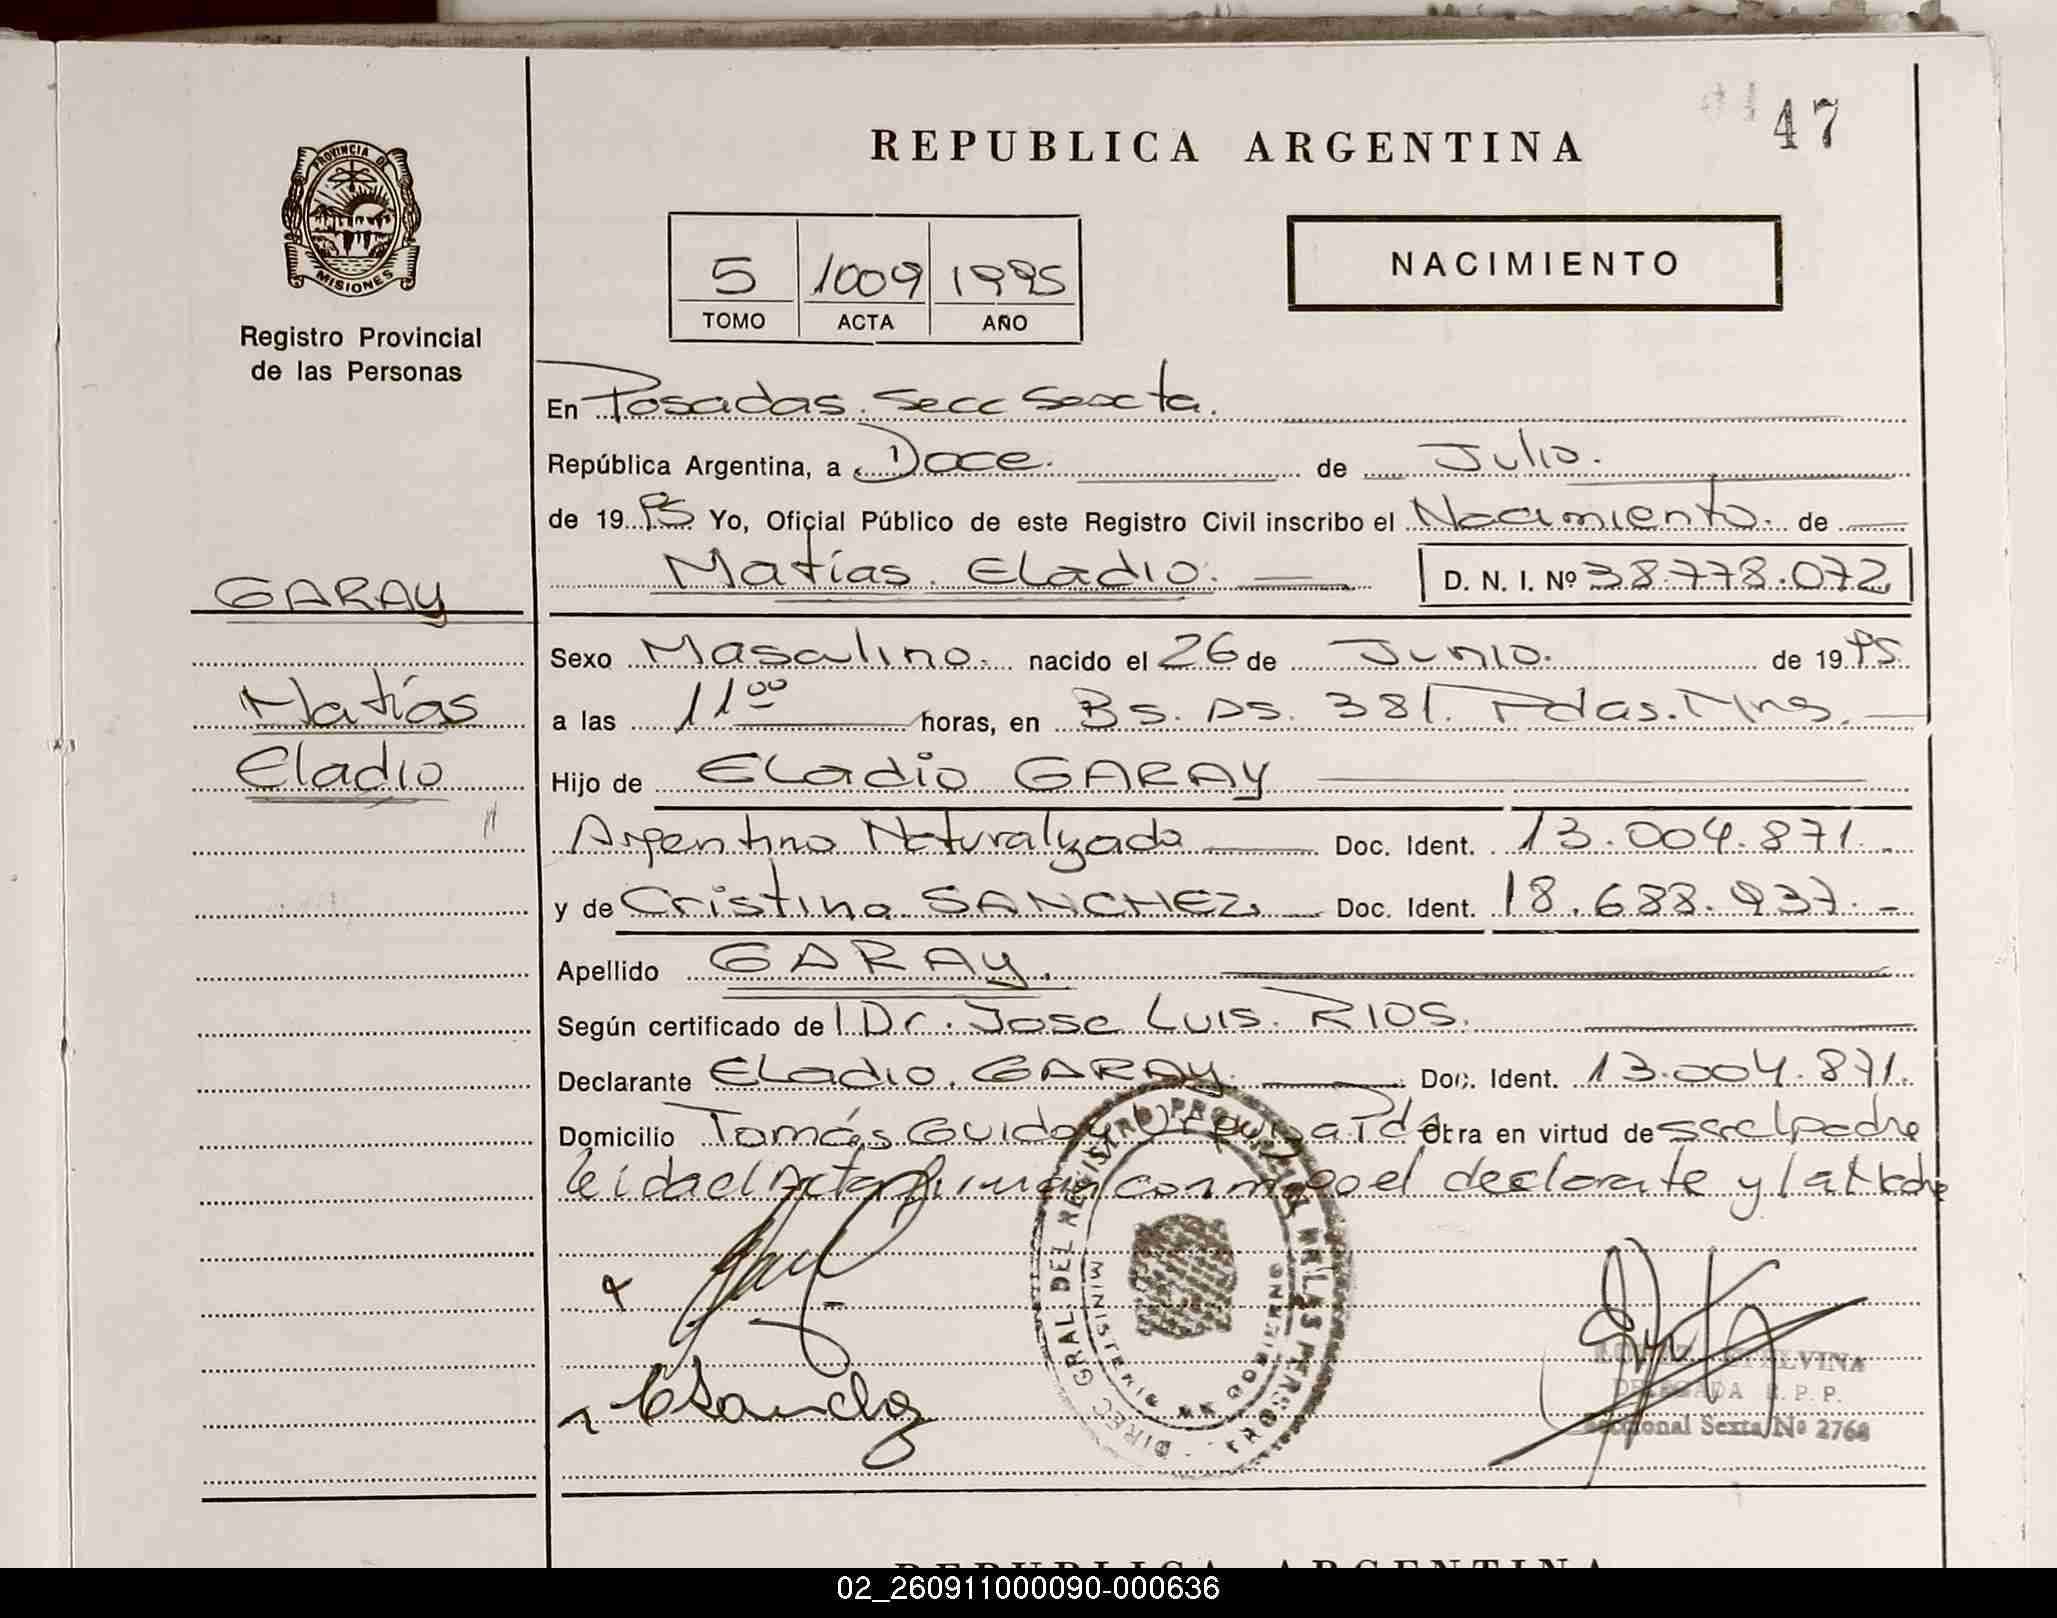 47
PROVINCIA DE
MISIONES
Registro Provincial
de las Personas
REPUBLICA ARGENTINA
5 1009 1995
TOMO ACTA AÑO
NACIMIENTO
En Posadas. Secc Sexta.
República Argentina, a Doce. de Julio.
de 1995 Yo, Oficial Público de este Registro Civil inscribo el Nacimiento. de
Matías. Eladio. D. N. I. Nº 38.778.072
GARAY
Matías
Eladio
Sexo Masculino. nacido el 26 de Junio. de 1995.
a las 11 00 horas, en Bs. As. 381. Pdas. Mns.
Hijo de Eladio GARAY
Argentino Naturalizado Doc. Ident. 13.004.871.
y de Cristina SANCHEZ Doc. Ident. 18.688.937.
Apellido GARAY.
Según certificado de Dr. Jose Luis. RIOS.
Declarante Eladio. GARAY. Doc. Ident. 13.004.871.
Domicilio Tomás Guido y Pdas Otra en virtud de ser el padre
leida el Acta firman conmigo el declarante y la Madre
DIREC GRAL. DEL REGISTRO PROVINCIAL DE LAS PERSONAS
MINISTERIO DE GOBIERNO
CSanchez
DELEGADA R. P. P.
Seccional Sexta Nº 2768
REPUBLICA ARGENTINA
02_260911000090-000636